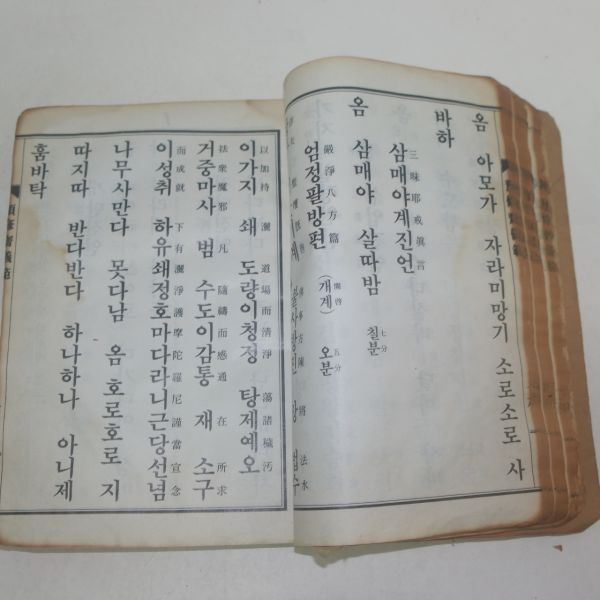 옴 아모가 자라미망기 소로소로 사
바하
삼매야계진언
三昧耶戒眞言
옴 삼매야 살따밤 칠분
七分
엄정팔방편 (개계) 오분
嚴淨八方篇 開啓 五分
이가지 쇄 도량이청정 탕제예오
以加持 灑 道場而清淨 蕩諸穢汚
거중마사 범 수도이감통 재 소구
法衆魔邪 凡 隨禱而感通 在 所求
이성취 하유쇄정호마다라니근당선념
而成就 下有灑淨護摩陀羅尼謹當宣念
나무사만다 못다남 옴 호로호로 지
따지따 반다반다 하나하나 아니제
훔바탁